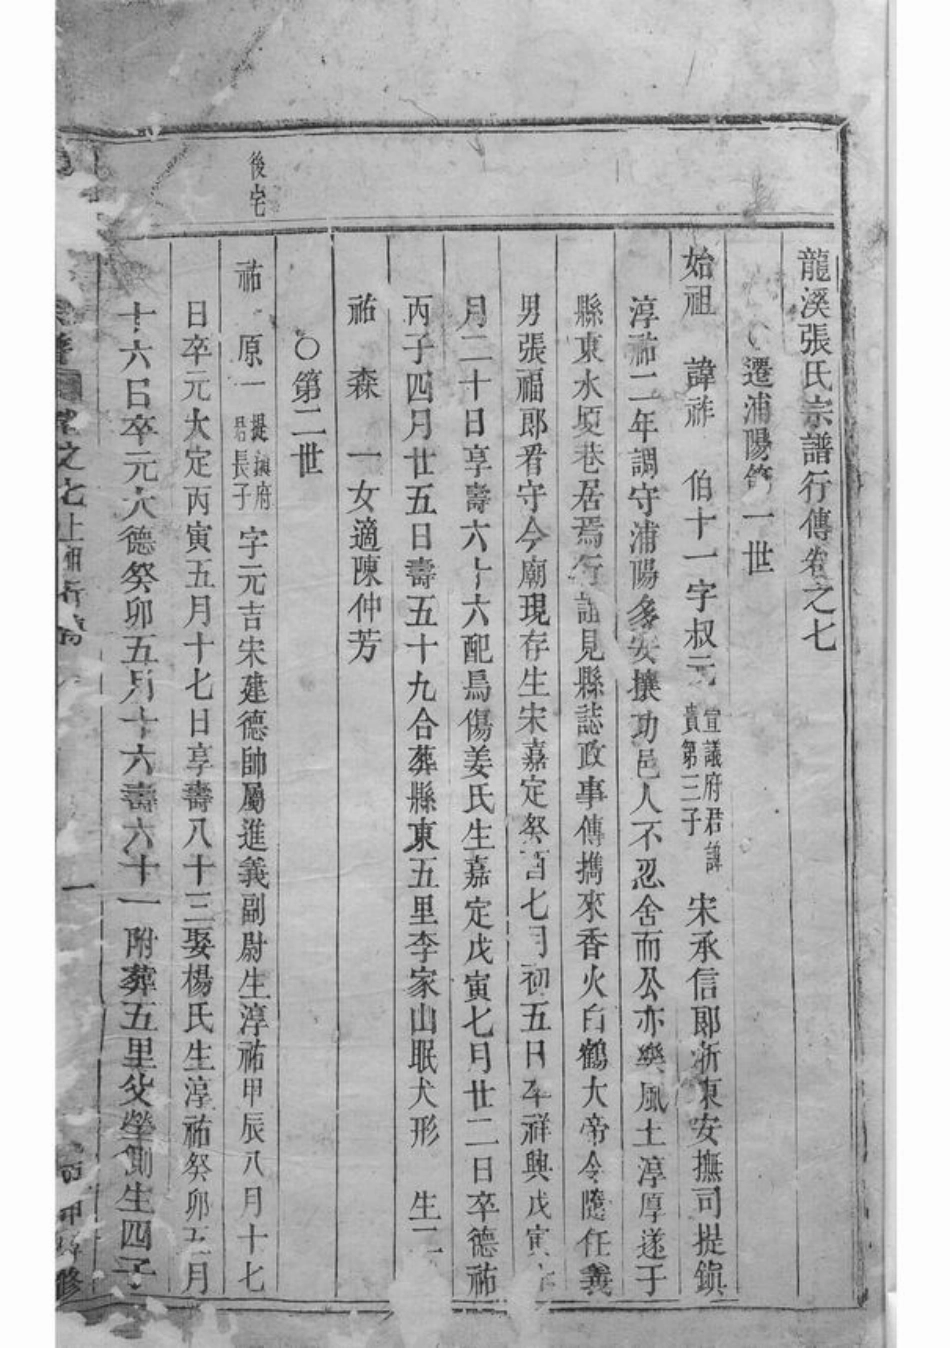 龍溪張氏宗譜行傳卷之七
遷浦陽第一世
始祖 諱祚 伯十一字叔元 宣議府君諱貴第三子 宋承信郎浙東安撫司提鎮
淳祐二年調守浦陽多安攘功邑人不忍舍而公亦樂風土淳厚遂于
縣東水夏巷居焉行誼見縣誌政事傳攜來香火白鶴大帝令隨任義
男張福郎看守今廟現存生宋嘉定癸酉七月初五日卒祥興戊寅
月二十日享壽六十六配烏傷姜氏生嘉定戊寅七月廿二日卒德祐
丙子四月廿五日壽五十九合葬縣東五里李家山眠犬形 生二
祐 森 一女適陳仲芳
○第二世
後宅
祐 原一 提鎮府君長子 字元吉宋建德帥屬進義副尉生淳祐甲辰八月十七
日卒元大定丙寅五月十七日享壽八十三娶楊氏生淳祐癸卯五月
十六日卒元大德癸卯五月十六壽六十一附葬五里父塋側生四子
之七上
一
修